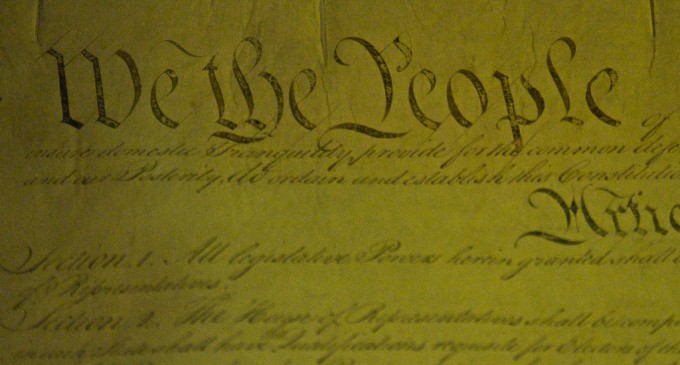 We the People of
insure domestic Tranquility, provide for the common defe
and our Posterity, do ordain and establish this Constitutio
Artic
Section. 1. All legislative Powers herein granted shall
of Representatives.
Section. 2. The House of Representatives shall be comp
in each State shall have Qualifications requisite for Electors of the